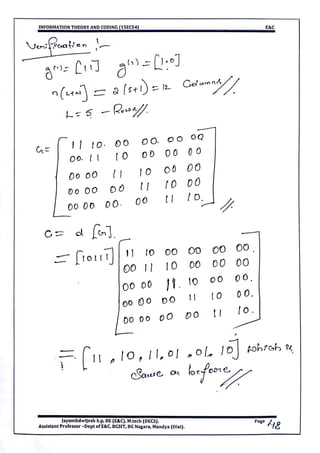 INFORMATION THEORY AND CODING (15EC54) E&C
Verification :-
g(1) = [11] g(2) = [1.0]
n(L+M) = 2(5+1) = 12 Columns//
L = 5 - Rows//.
G = [ 11 10. 00 00. 00 00
00. 11 10 00 00 00
00 00 11 10 00 00
00 00 00 11 10 00
00 00 00. 00 11 10. ]//.
C = d [G].
= [10111] [ 11 10 00 00 00 00.
00 11 10 00 00 00
00 00 11. 10 00 00.
00 00 00 11 10 00.
00 00 00 00 11 10. ]
= [11, 10, 11, 01, 01, 10] which is
Same as before//
Jayanthdwijesh h.p, BE (E&C), M.tech (DECS).
Assistant Professor -Dept of E&C. BGSIT, BG Nagara, Mandya (Dist).
Page 48